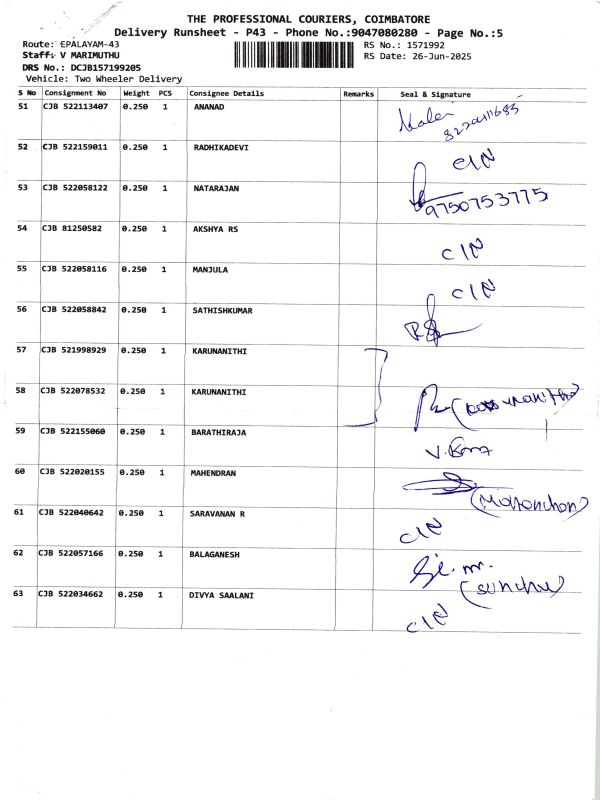 THE PROFESSIONAL COURIERS, COIMBATORE
Delivery Runsheet - P43 - Phone No.:9047080280 - Page No.:5
Route: EPALAYAM-43 RS No.: 1571992
Staff: V MARIMUTHU RS Date: 26-Jun-2025
DRS No.: DCJB157199205
Vehicle: Two Wheeler Delivery
S No Consignment No Weight PCS Consignee Details Remarks Seal & Signature
51 CJB 522113407 0.250 1 ANANAD
52 CJB 522159011 0.250 1 RADHIKADEVI CIN
53 CJB 522058122 0.250 1 NATARAJAN 9750753775
54 CJB 81250582 0.250 1 AKSHYA RS CIN
55 CJB 522058116 0.250 1 MANJULA CIN
56 CJB 522058842 0.250 1 SATHISHKUMAR
57 CJB 521998929 0.250 1 KARUNANITHI
58 CJB 522078532 0.250 1 KARUNANITHI
59 CJB 522155060 0.250 1 BARATHIRAJA
60 CJB 522020155 0.250 1 MAHENDRAN
61 CJB 522040642 0.250 1 SARAVANAN R CIN
62 CJB 522057166 0.250 1 BALAGANESH
63 CJB 522034662 0.250 1 DIVYA SAALANI CIN